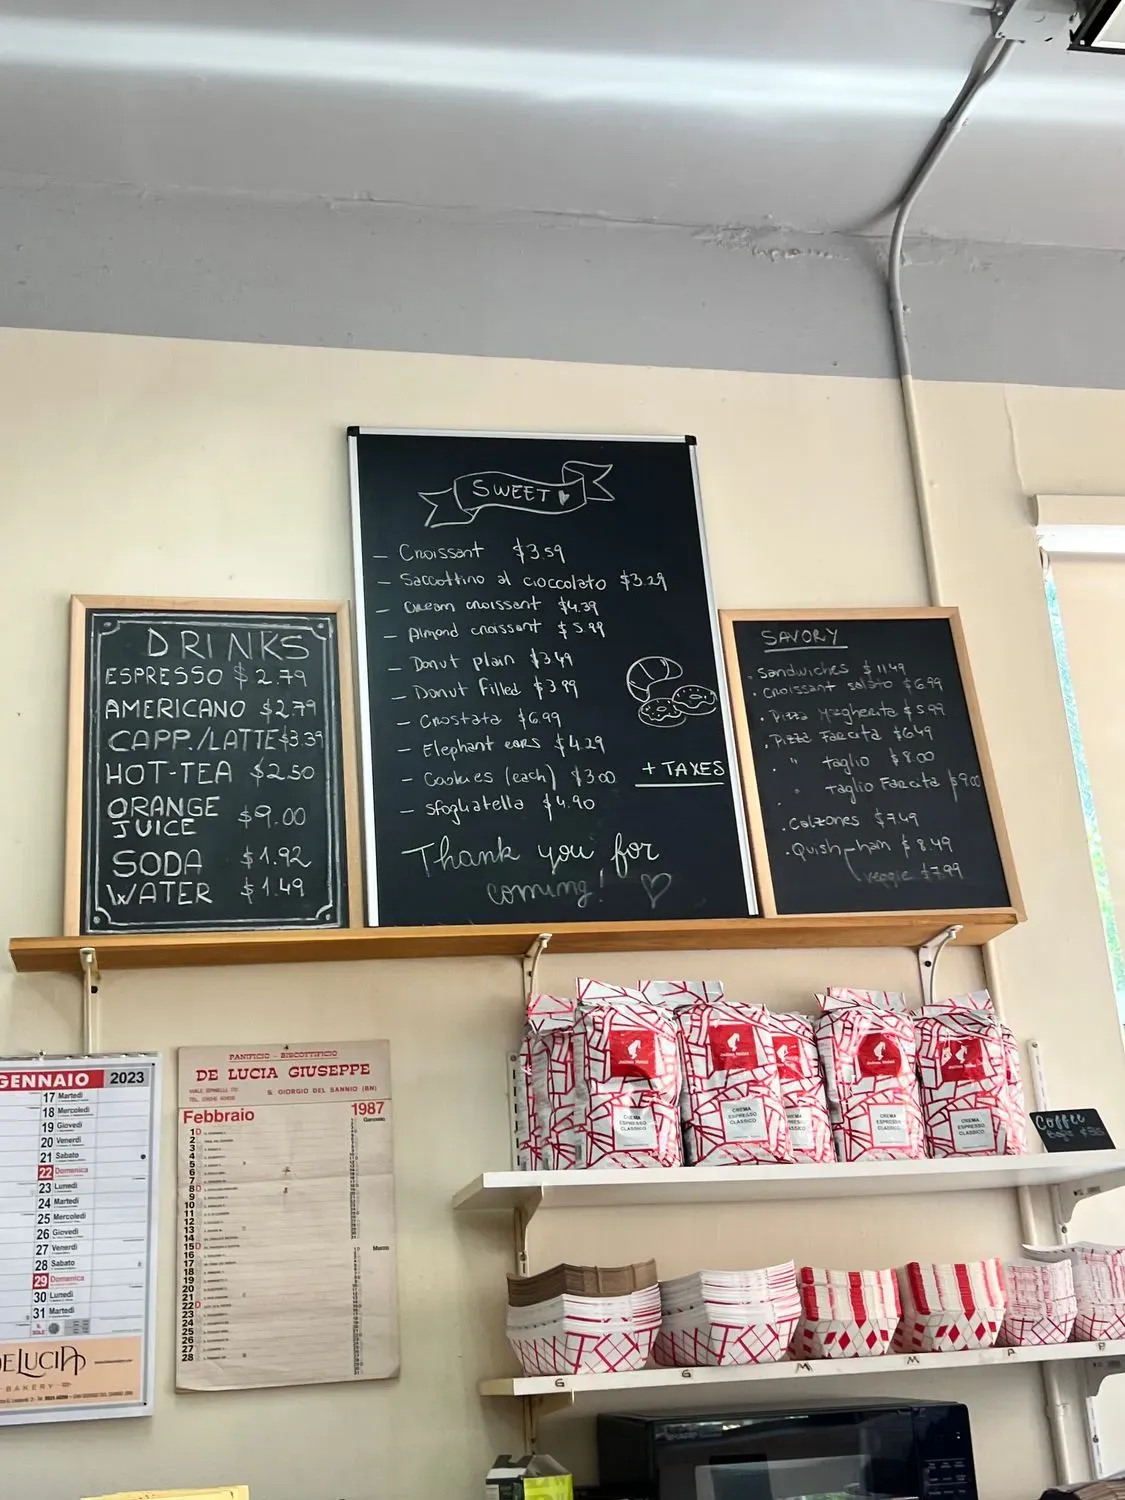 SWEET
— Croissant $3.59
— Saccottino al cioccolato $3.29
— Cream croissant $4.39
— Almond croissant $5.99
— Donut plain $3.49
— Donut Filled $3.99
— Crostata $6.99
— Elephant ears $4.29
— Cookies (each) $3.00
— sfogliatella $4.90
+ TAXES
Thank you for
coming!
DRINKS
ESPRESSO $2.79
AMERICANO $2.79
CAPP./LATTE $3.39
HOT-TEA $2.50
ORANGE
JUICE $9.00
SODA $1.92
WATER $1.49
SAVORY
. Sandwiches $11.49
. Croissant salato $6.99
. Pizza Margherita $5.99
. Pizza Farcita $6.49
. " taglio $8.00
. " Taglio Farcita $9.00
. Calzones $7.49
. Quish ham $8.49
veggie $7.99
GENNAIO 2023
17 Martedì
18 Mercoledì
19 Giovedì
20 Venerdì
21 Sabato
22 Domenica
23 Lunedì
24 Martedì
25 Mercoledì
26 Giovedì
27 Venerdì
28 Sabato
29 Domenica
30 Lunedì
31 Martedì
DELUCIA
BAKERY
PANIFICIO - BISCOTTIFICIO
DE LUCIA GIUSEPPE
S. GIORGIO DEL SANNIO (BN)
Febbraio 1987
Gennaio
1 D
2
3
4
5
6
7
8 D
9
10
11
12
13
14
15 D
16
17
18
19
20
21
22 D
23
24
25
26
27
28
Marzo
Julius Meinl
CREMA
ESPRESSO
CLASSICO
Julius Meinl
CREMA
ESPRESSO
CLASSICO
CREMA
ESPRESSO
CLASSICO
Julius Meinl
CREMA
ESPRESSO
CLASSICO
Julius Meinl
CREMA
ESPRESSO
CLASSICO
Coffee
G G M M P P